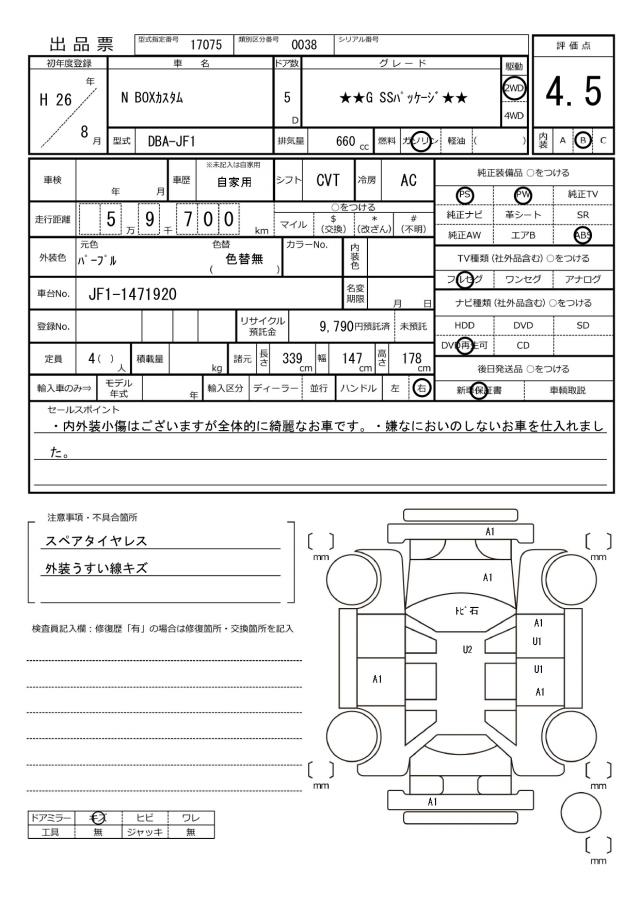 出品票
型式指定番号 17075 類別区分番号 0038 シリアル番号
評価点
4.5
内装 A B C
初年度登録 車名 ドア数 グレード 駆動
H 26 年 8 月
N BOXカスタム
5 D
★★G SSパッケージ★★
2WD
4WD
型式 DBA-JF1 排気量 660 cc 燃料 ガソリン 軽油 ( )
車検 年 月 車歴 ※未記入は自家用 自家用 シフト CVT 冷房 AC
走行距離 5 万 9 千 7 0 0 km
○をつける
マイル $ (交換) * (改ざん) # (不明)
外装色 元色 パープル 色替 ( 色替無 ) カラーNo. 内装色
車台No. JF1-1471920 名変期限 月 日
登録No. リサイクル預託金 9,790円預託済 未預託
定員 4 ( ) 人 積載量 kg 諸元 長さ 339 cm 幅 147 cm 高さ 178 cm
輸入車のみ⇒ モデル年式 年 輸入区分 ディーラー 並行 ハンドル 左 右
純正装備品 ○をつける
PS PW 純正TV
純正ナビ 革シート SR
純正AW エアB ABS
TV種類 (社外品含む) ○をつける
フルセグ ワンセグ アナログ
ナビ種類 (社外品含む) ○をつける
HDD DVD SD
DVD再生可 CD
後日発送品 ○をつける
新車保証書 車輌取説
セールスポイント
・内外装小傷はございますが全体的に綺麗なお車です。・嫌なにおいのしないお車を仕入れまし
た。
注意事項・不具合箇所
スペアタイヤレス
外装うすい線キズ
検査員記入欄：修復歴「有」の場合は修復箇所・交換箇所を記入
ドアミラー キズ ヒビ ワレ
工具 無 ジャッキ 無
A1
mm
mm
A1
トビ石
A1
U1
U2
U1
A1
A1
mm
mm
A1
mm